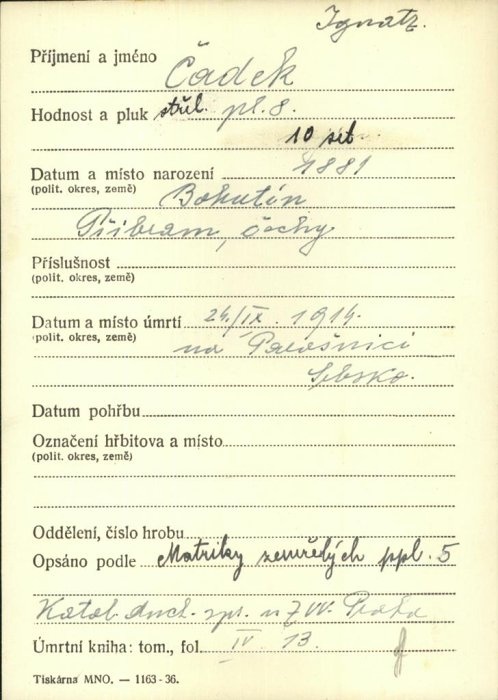 Ignatz.
Příjmení a jméno Čádek
Hodnost a pluk střel. pl. 8.
10 set.
Datum a místo narození 1881
(polit. okres, země) Bohutín
Příbram, čechy
Příslušnost
(polit. okres, země)
Datum a místo úmrtí 24./IX. 1914.
(polit. okres, země) na
Srbsko.
Datum pohřbu
Označení hřbitova a místo
(polit. okres, země)
Oddělení, číslo hrobu
Opsáno podle Matriky zemřelých ppl. 5
Katol. duch. spr. u ZVV. Praha
Úmrtní kniha: tom., fol. IV. 13.
Tiskárna MNO. — 1163-36.